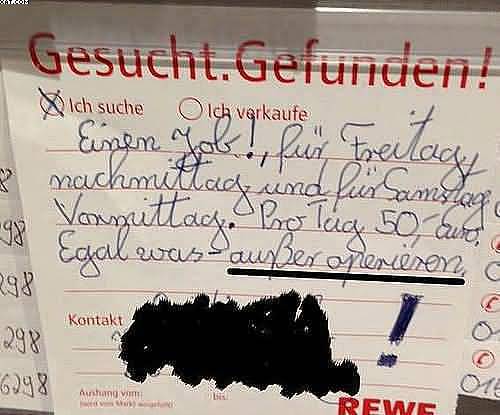 Gesucht. Gefunden!
Ich suche Ich verkaufe
Einen Job!, für Freitag,
nachmittag und für Samstag
Vormittag. Pro Tag 50,- Euro,
Egal was - außer operieren,
!
Kontakt
298
298
298
6298
Aushang vom: bis:
(wird vom Markt ausgefüllt)
REWE